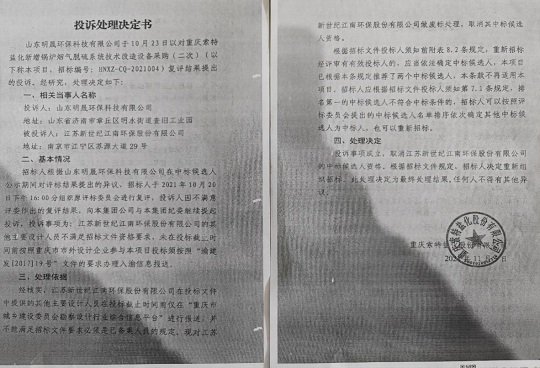 投诉处理决定书
山东明晟环保科技有限公司于10月23日以对重庆索特
盐化新增锅炉烟气脱硫系统技术改造设备采购（二次）（以
下称本项目，招标编号：HNXZ-CQ-2021004）复评结果提出
的投诉，经研究，处理决定如下：
一、相关当事人名称
投诉人：山东明晟环保科技有限公司
地址：山东省济南市章丘区明水街道查旧工业园
被投诉人：江苏新世纪江南环保股份有限公司
地址：南京市江宁区苏源大道29号
二、基本情况
招标人根据山东明晟环保科技有限公司在中标候选人
公示期间对评标结果提出的异议，招标人于2021年10月20
日下午16:00分组织原评标委员会进行复评，投诉人因不满意
评委作出的复评结果，向本集团公司与本集团纪委继续提起
投诉，投诉事项为：江苏新世纪江南环保股份有限公司的其
他主要设计人员不满足招标文件资格要求，未在投标截止时
间前按照重庆市市外设计企业参与本项目投标须按照“渝建
发[2017]19号”文件的要求办理入渝信息报送。
三、处理依据
经核实，江苏新世纪江南环保股份有限公司在投标文件
中提供的其他主要设计人员在投标截止时间前仅在“重庆市
城乡建设委员会勘察设计行业综合信息平台”进行报送，并
不能满足招标文件要求必须是已备案人员的规定，现对江苏
新世纪江南环保股份有限公司做废标处理，取消其中标候选
人资格。
根据招标文件投标人须知前附表8.2条规定，重新招标
经评审有有效投标人的，应当依法确定中标候选人，本项目
已根据本条规定推荐了两个中标候选人，本条款不再适用本
项目，招标人应根据招标文件投标人须知第7.1条规定，排
名第一的中标候选人不符合中标条件的，招标人可以按照评
标委员会提出的中标候选人名单排序依次确定其他中标候
选人为中标人，也可以重新招标。
四、处理决定
投诉事项成立，取消江苏新世纪江南环保股份有限公司
的中标候选人资格，根据招标文件规定，招标人决定重新组
织招标，此处理决定为最终处理结果，任何人不得有其他异
议。
重庆索特盐化股份有限公司